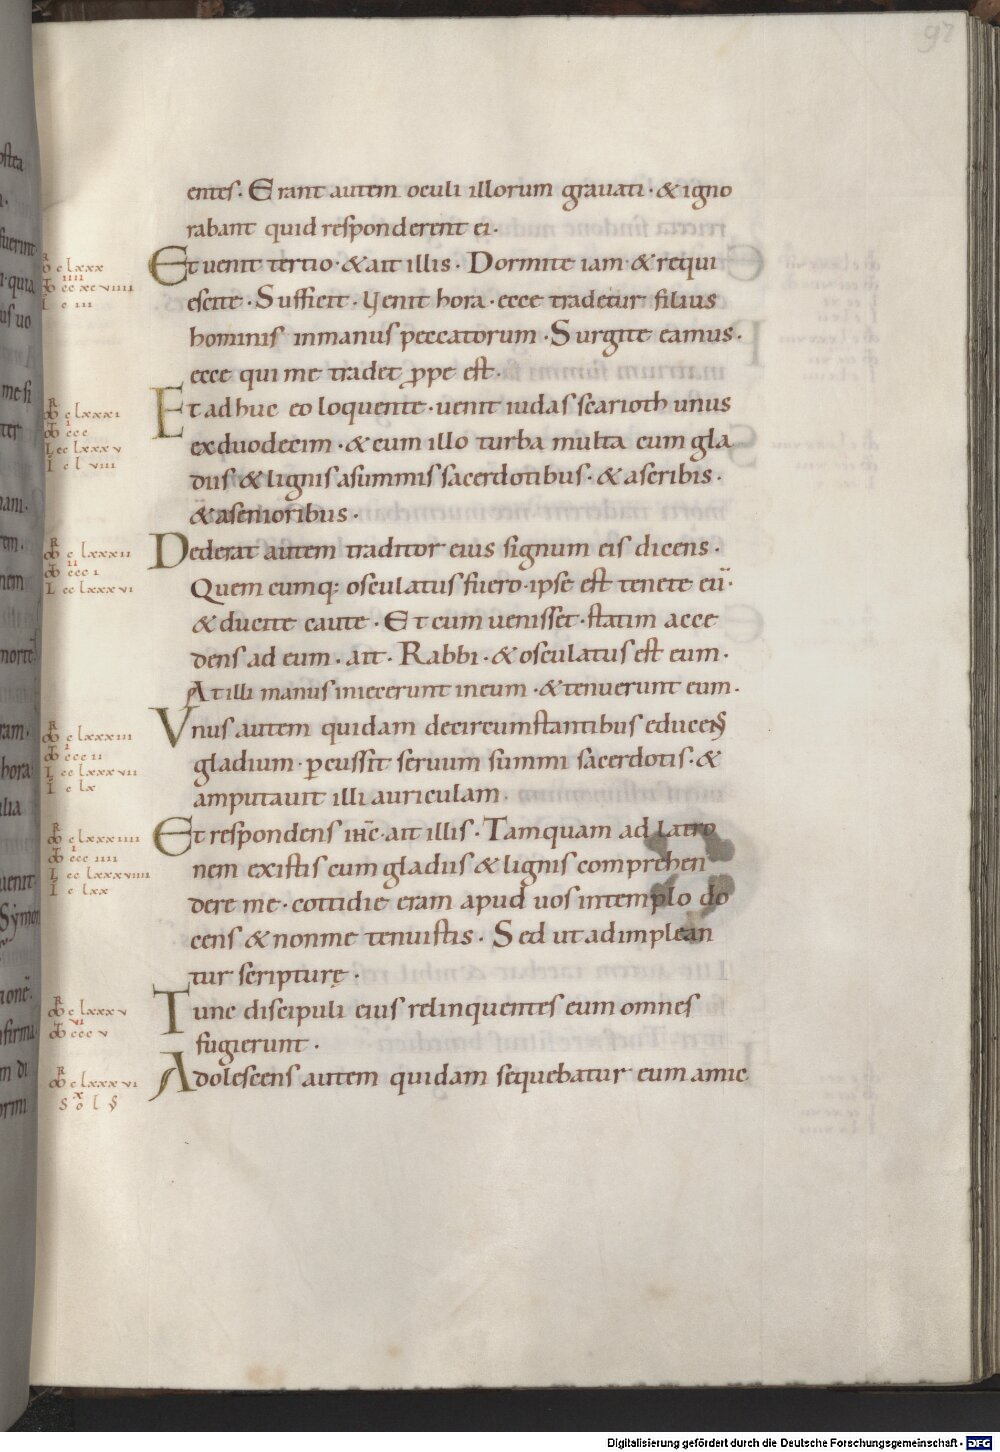 97
entes. Erant autem oculi illorum grauati. & igno
rabant quid responderent ei.
Et uenit tertio. & ait illis. Dormite iam & requi
escite. Sufficit. Uenit hora. ecce tradetur filius
hominis inmanus peccatorum. Surgite eamus.
ecce qui me tradet ꝓpe est.
Et adhuc eo loquente. uenit iudas scarioth unus
exduodecim. & cum illo turba multa cum gla
diis & lignis asummis sacerdotibus. & ascribis.
& asenioribus.
Dederat autem traditor eius signum eis dicens.
Quem cumq: osculatus fuero. ipse est tenete eū.
& ducite caute. Et cum uenisset. statim acce
dens ad eum. ait. Rabbi. & osculatus est eum.
At illi manus iniecerunt ineum. & tenuerunt eum.
Vnus autem quidam decircumstantibus educens
gladium. ꝑcussit seruum summi sacerdotis. &
amputauit illi auriculam.
Et respondens ihc̄. ait illis. Tamquam ad latro
nem existis cum gladiis & lignis comprehen
dere me. cottidie eram apud uos intemplo do
cens & nonme tenuistis. Sed ut adimplean
tur scripturę.
Tunc discipuli eius relinquentes eum omnes
fugierunt.
Adolescens autem quidam sequebatur eum amic
Digitalisierung gefördert durch die Deutsche Forschungsgemeinschaft - DFG